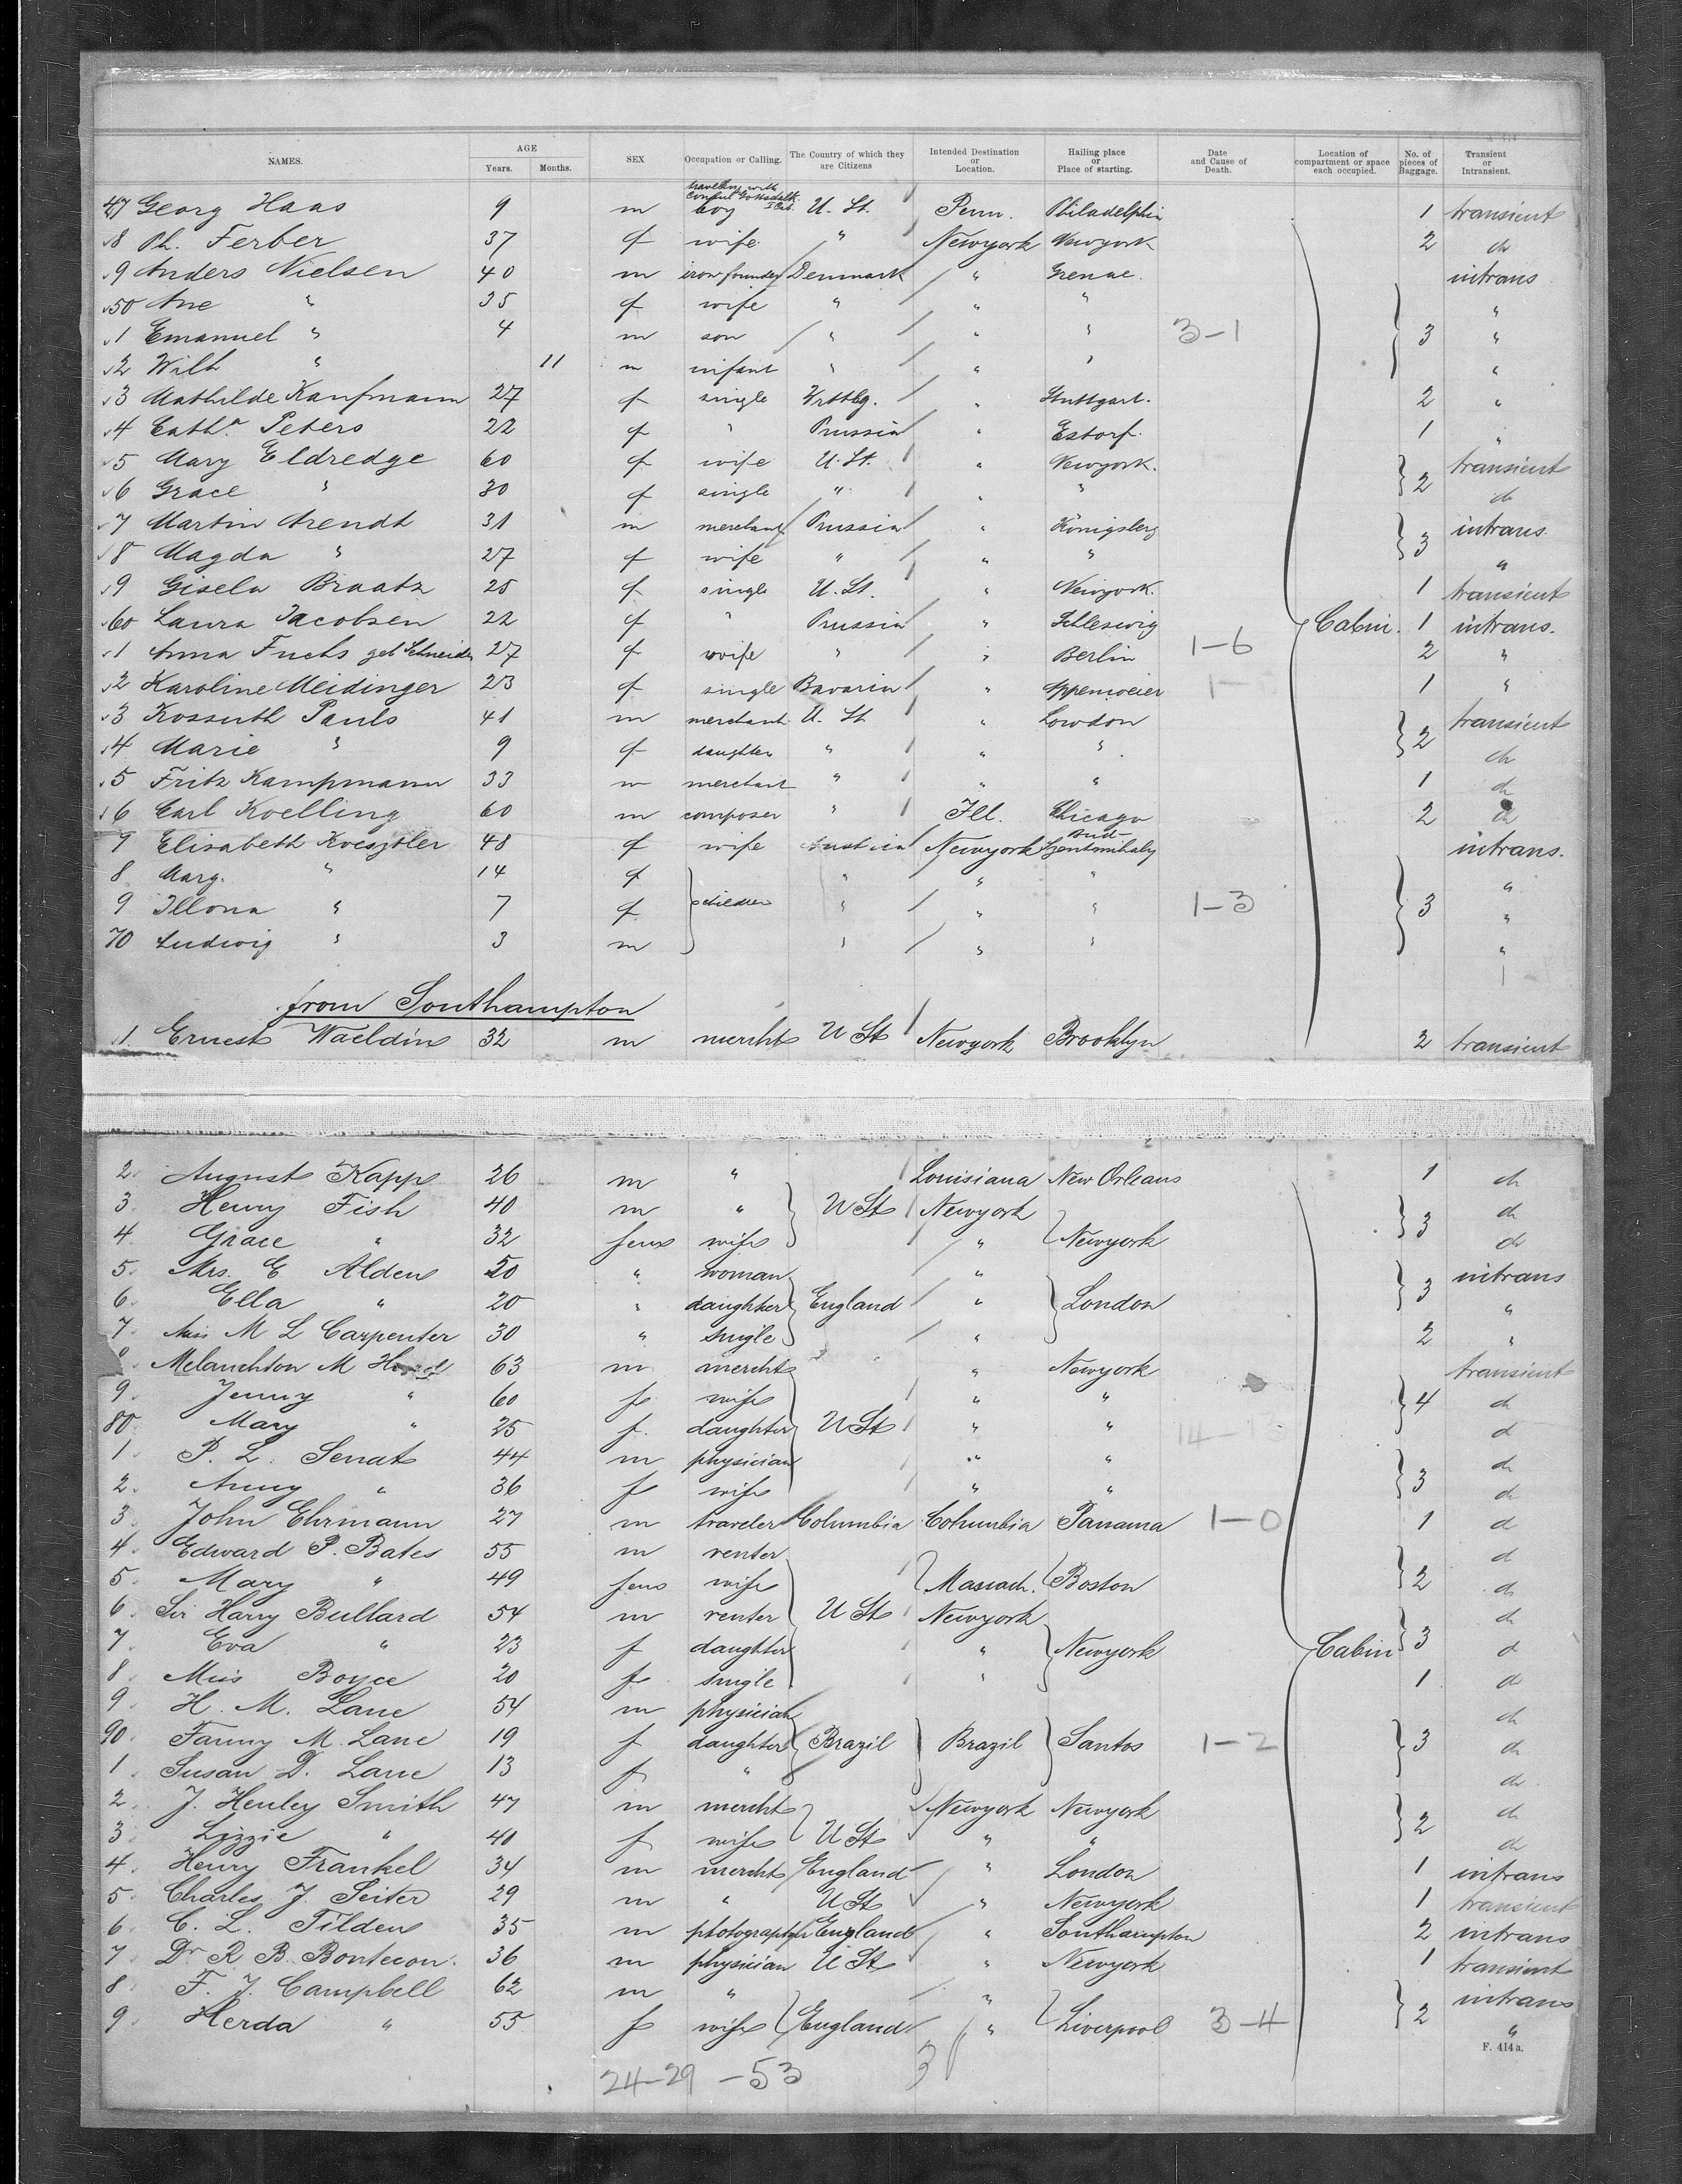 NAMES. AGE Years. Months. SEX Occupation or Calling. The Country of which they are Citizens Intended Destination or Location. Hailing place or Place of starting. Date and Cause of Death. Location of compartment or space each occupied. No. of pieces of Baggage. Transient or Intransient.
47 Georg Haas 9 m traveling with Consul boy U. St. Penn. Philadelphia 1 transient
8 Ph. Ferber 37 f wife " Newyork Newyork 2 do
9 Anders Nielsen 40 m iron founder Denmark " Grenae. intrans
50 Ane " 35 f wife " " " "
1 Emanuel " 4 m son " " " 3-1 3 "
2 Wilh " 11 m infant " " " "
3 Mathilde Kaufmann 27 f single Wrttbg. " Stuttgart. 2 "
4 Cath.a Peters 22 f " Prussia " Estorf. 1 "
5 Mary Eldredge 60 f wife U. St. " Newyork. transient
6 Grace " 30 f single " " " 2 do
7 Martin Arendt 31 m merchant Prussia " Königsberg intrans.
8 Magda " 27 f wife " " " 3 "
9 Gisela Braatz 25 f single U. St. " Newyork. 1 transient
60 Laura Jacobsen 22 f " Prussia " Schleswig Cabin. 1 intrans.
1 Anna Fuchs geb Schneider 27 f wife " " Berlin 1-6 2 "
2 Karoline Meidinger 23 f single Bavaria " Appenweier 1- 1 "
3 Kossuth Pauls 41 m merchant U. St " London transient
4 Marie " 9 f daughter " " " 2 do
5 Fritz Kampmann 33 m merchant " " " 1 do
6 Carl Koelling 60 m composer " Ill. Chicago 2 do
7 Elisabeth Koesztler 48 f wife Austria Newyork Bud- Szentmihaly intrans.
8 Marg. " 14 f " " " "
9 Illona " 7 f children " " " 1-3 3 "
70 Ludwig " 3 m " " " "
from Southampton
1. Ernest Waeldin 32 m mercht U St Newyork Brooklyn 2 transient
2. August Kapp 26 m " Louisiana New Orleans 1 do
3. Henry Fish 40 m " U St Newyork do
4. Grace " 32 fem wife " Newyork 3 do
5. Mrs. E Alden 50 " woman " intrans
6. Ella " 20 " daughter England " London 3 "
7. Miss M L Carpenter 30 " single " 2 "
Melanchton M 63 m mercht " Newyork transient
9. Jenny " 60 f wife " " 4 do
80. Mary " 25 f. daughter U St " " 14- do
1. P. L. Senat 44 m physician " " do
2. Anny " 36 f wife " " 3 do
3. John Ehrmann 27 m traveler Columbia Columbia Panama 1-0 1 do
4. Edward P. Bates 55 m renter do
5. Mary " 49 fem wife Massach. Boston 2 do
6. Sir Harry Bullard 54 m renter U St Newyork do
7. Eva " 23 f daughter " Newyork Cabin 3 do
8. Miss Boyce 20 f single " 1 do
9. H. M. Lane 54 m physician do
90. Fanny M. Lane 19 f daughter Brazil Brazil Santos 1-2 3 do
1. Susan D. Lane 13 f " do
2. J. Henley Smith 47 m mercht Newyork Newyork do
3. Lizzie " 40 f wife U St " " 2 do
4. Henry Frankel 34 m mercht England " London 1 intrans
5. Charles J. Seiter 29 m " U St " Newyork 1 transient
6. C. L. Tilden 35 m photographer England " Southampton 2 intrans
7. Dr R B. Bontecon. 36 m physician U St " Newyork 1 transient
8. F. J. Campbell 62 m " " intrans
9. Herda " 55 f wife England " Liverpool 3-4 2 "
F. 414a.
24-29 -53 3